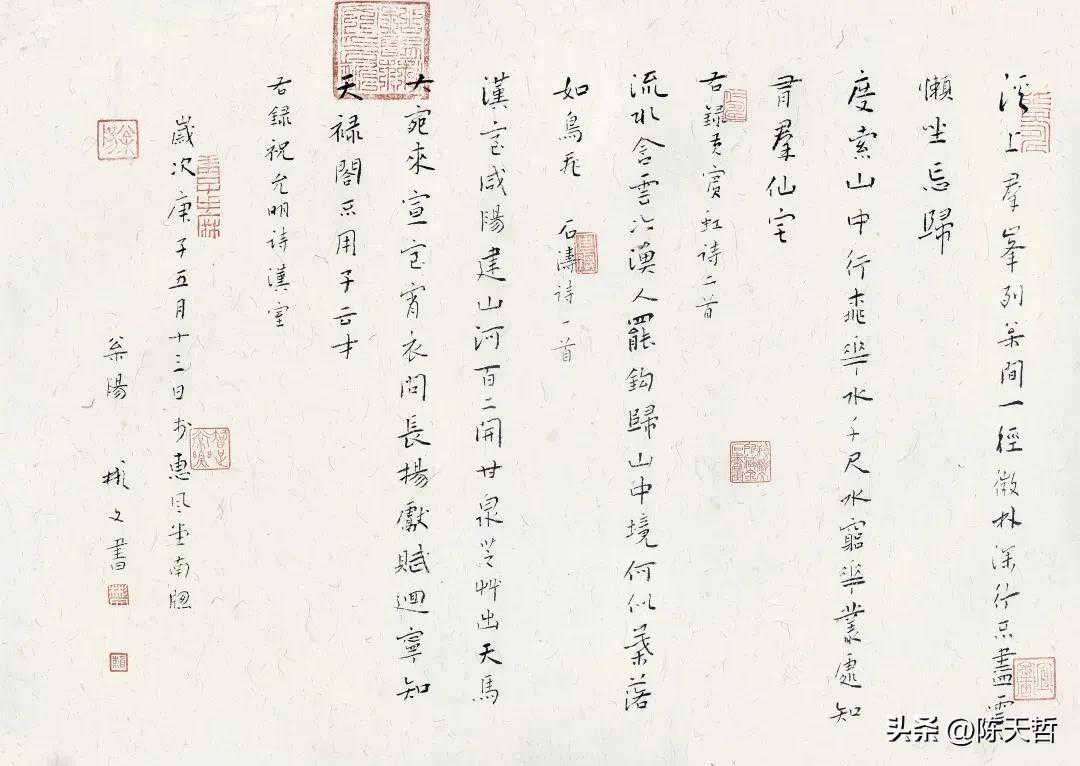 溪上羣峯列其間一徑微林深行不盡雲
懶坐忘歸
度索山中行桃華水千尺水窮華叢處知
有羣仙宅
右錄黃賓虹詩二首
流水含雲冷漁人罷釣歸山中境何似葉落
如鳥飛 石濤詩一首
漢室咸陽建山河百二開甘泉芝艸出天馬
大宛來宣室宵衣問長揚獻賦迴寧知
天禄閣不用子云才
右錄祝允明詩漢室
歲次庚子五月十三日於惠風堂南牕
陽 彬文書
头条 @陈天哲